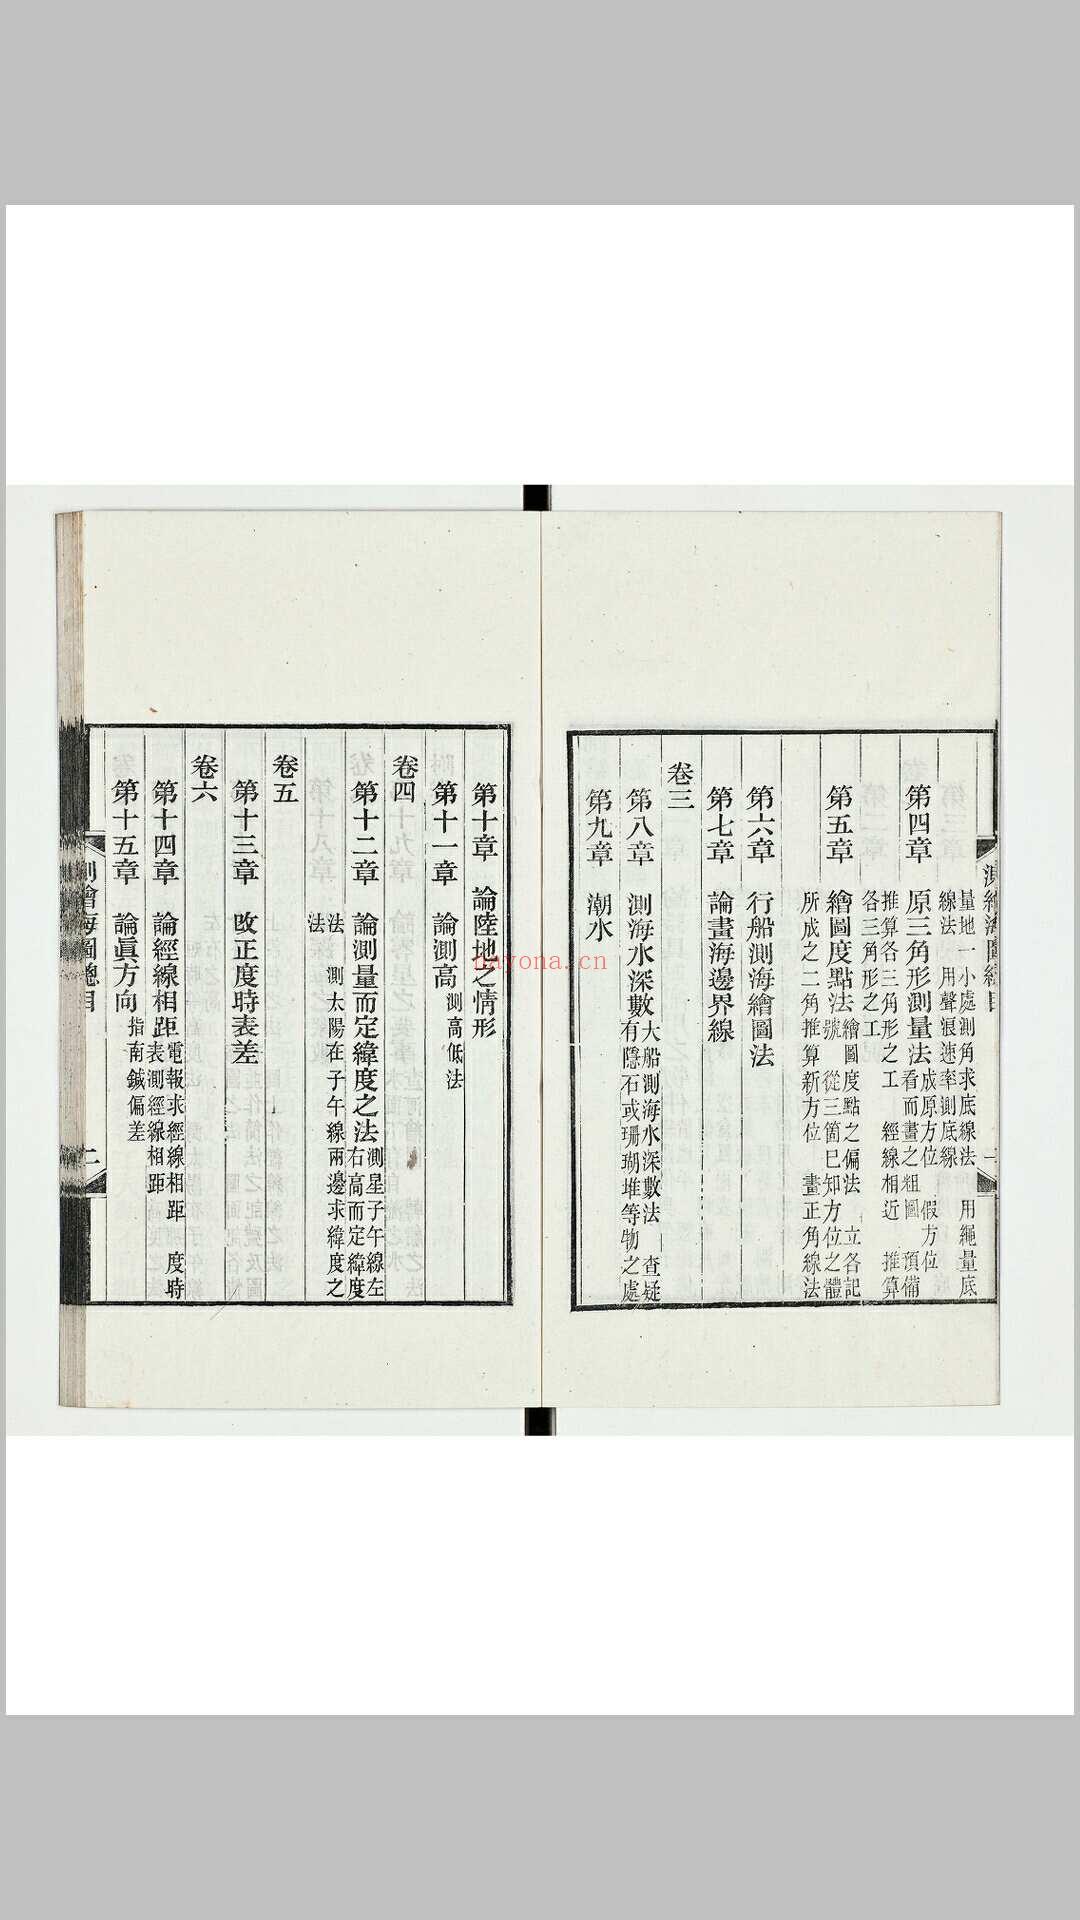 測繪海圖總目
量地一小處測角求底線法　用繩量底
線法　用聲浪速率測底線
第四章　原三角形測量法成原方位　假方位
看而畫之粗圖　預備
推算各三角形之工　經線相近　推算
各三角形之工
第五章　繪圖度點法繪圖度點之偏法　立各記
號　從三箇已知方位之體
所成之二角推算新方位　畫正角線法
第六章　行船測海繪圖法
第七章　論畫海邊界線
卷三
第八章　測海水深數大船測海水深數法　查疑
有隱石或珊瑚堆等物之處
第九章　潮水
第十章　論陸地之情形
第十一章　論測高測高低法
卷四
第十二章　論測量而定緯度之法測星子午線左
右高而定緯度
法　測太陽在子午線兩邊求緯度之
法
卷五
第十三章　改正度時表差
卷六
第十四章　論經線相距電報求經線相距　度時
表測經線相距
第十五章　論眞方向指南鍼偏差
測繪海圖總目
二
nayona.cn